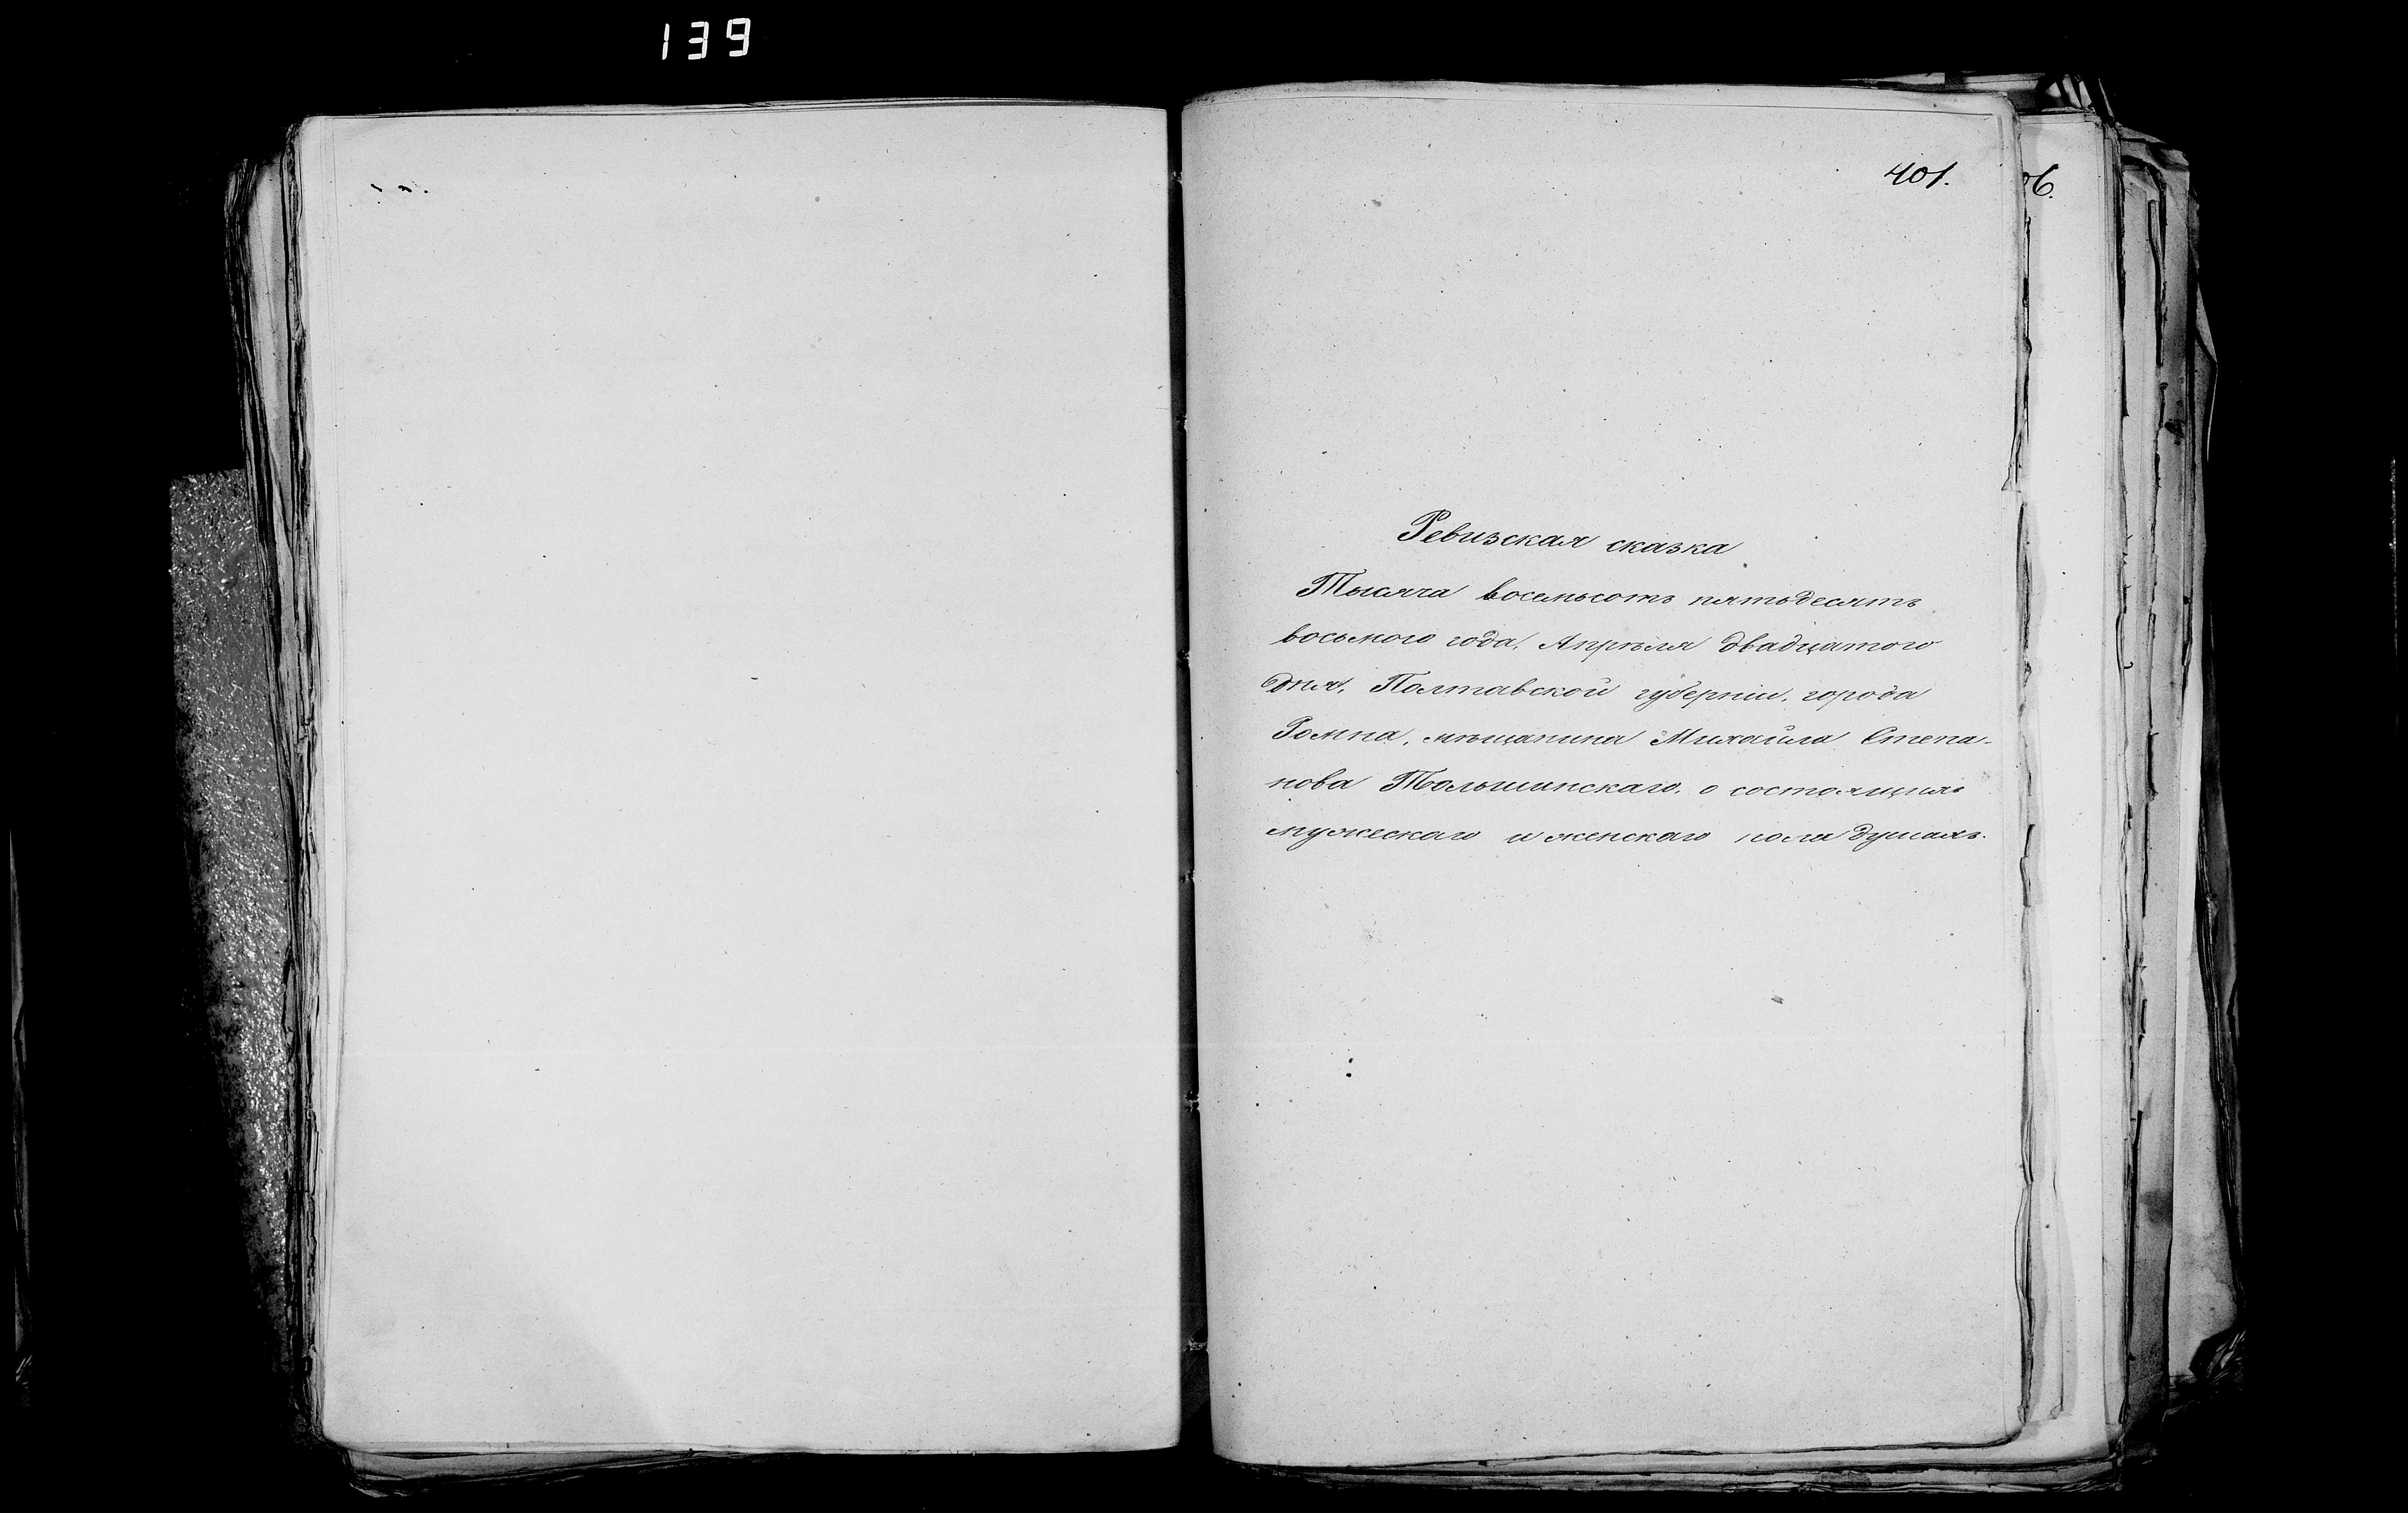 139
401.
06.
Ревизская сказка
Тысяча восемьсотъ пятьдесятъ
восьмого года, Апрѣля двадцатого
дня, Полтавской губерніи, города
Ромна, мѣщанина Михайла Степа-
нова Тольшинскаго, о состоящихъ
мужескаго и женскаго пола душахъ.